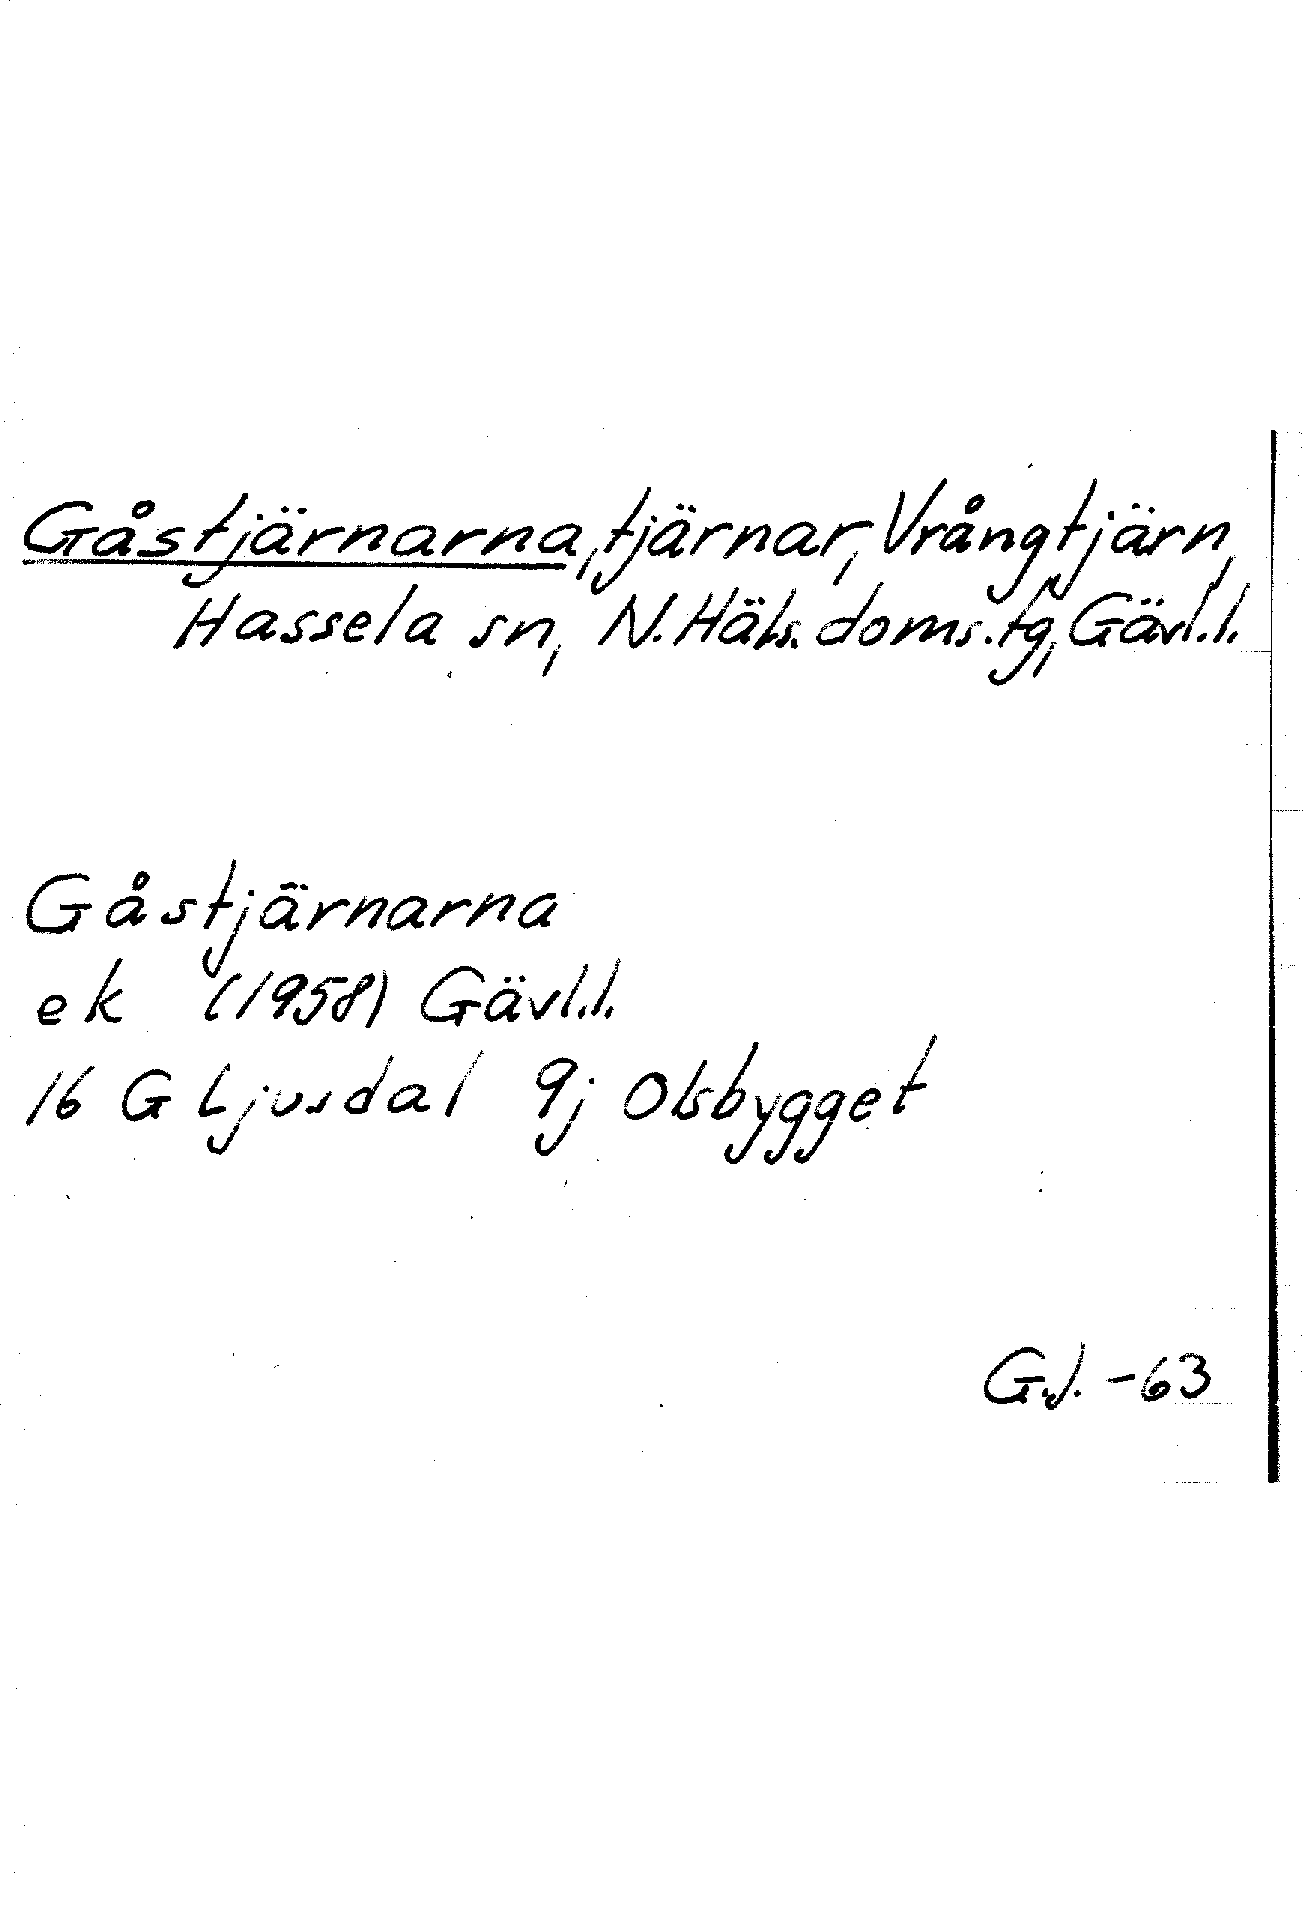 Gåstjärnarna, tjärnar, Vrångtjärn,
Hassela sn, N. Häls. doms.tg, Gävl.l.
Gåstjärnarna
ek (1958) Gävl.l.
16 G Ljusdal 9j Olsbygget
G.J. -63